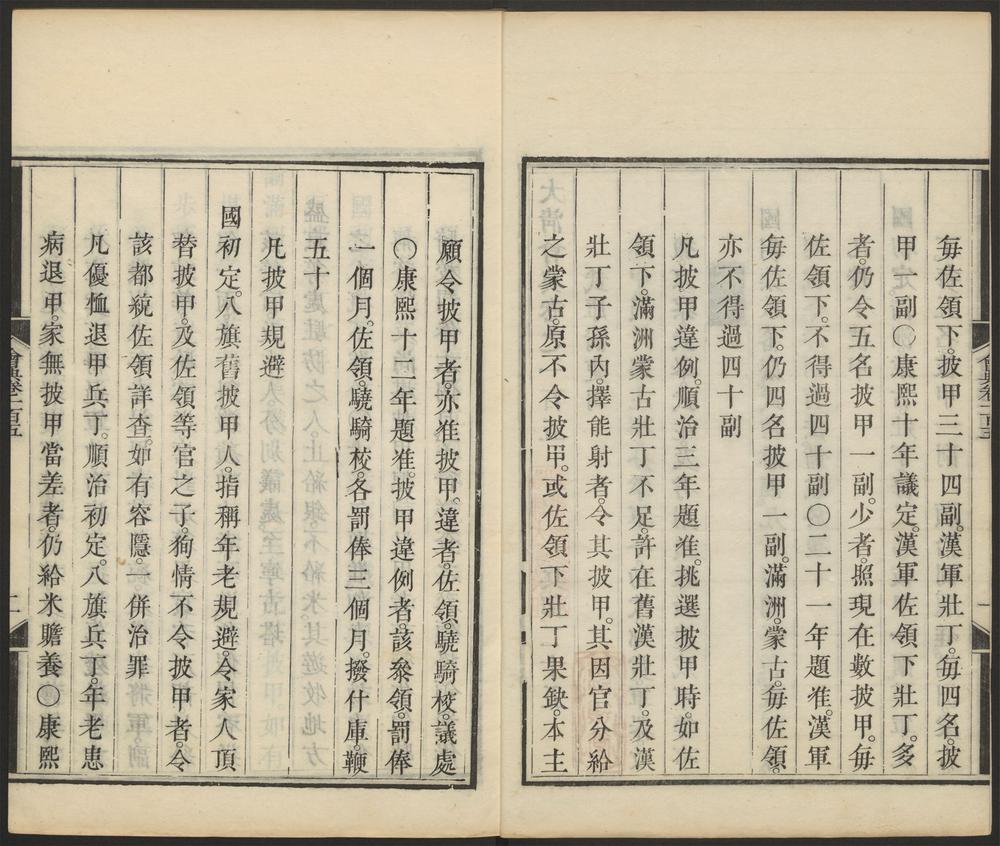 每佐領下。披甲三十四副。漢軍壯丁。每四名。披
甲一副〇康熙十年議定。漢軍佐領下壯丁。多
者。仍令五名披甲一副。少者。照現在數披甲。每
佐領下。不得過四十副〇二十一年題准。漢軍
每佐領下。仍四名披甲一副。滿洲。蒙古。每佐領。
亦不得過四十副
凡披甲違例。順治三年題准。挑選披甲時。如佐
領下。滿洲蒙古壯丁不足。許在舊漢壯丁。及漢
壯丁子孫內。擇能射者。令其披甲。其因官分給
之蒙古。原不令披甲。或佐領下壯丁果缺。本主
願令披甲者。亦准披甲。違者。佐領。驍騎校。議處
〇康熙十二年題准。披甲違例者。該叅領。罰俸
一個月。佐領。驍騎校。各罰俸三個月。撥什庫。鞭
五十
凡披甲規避
國初定。八旗舊披甲人。指稱年老規避。令家人頂
替披甲。及佐領等官之子。狥情不令披甲者。令
該都統佐領詳查。如有容隱。一併治罪
凡優恤退甲兵丁。順治初定。八旗兵丁。年老患
病退甲。家無披甲當差者。仍給米贍養〇康熙
會典卷一百五
二